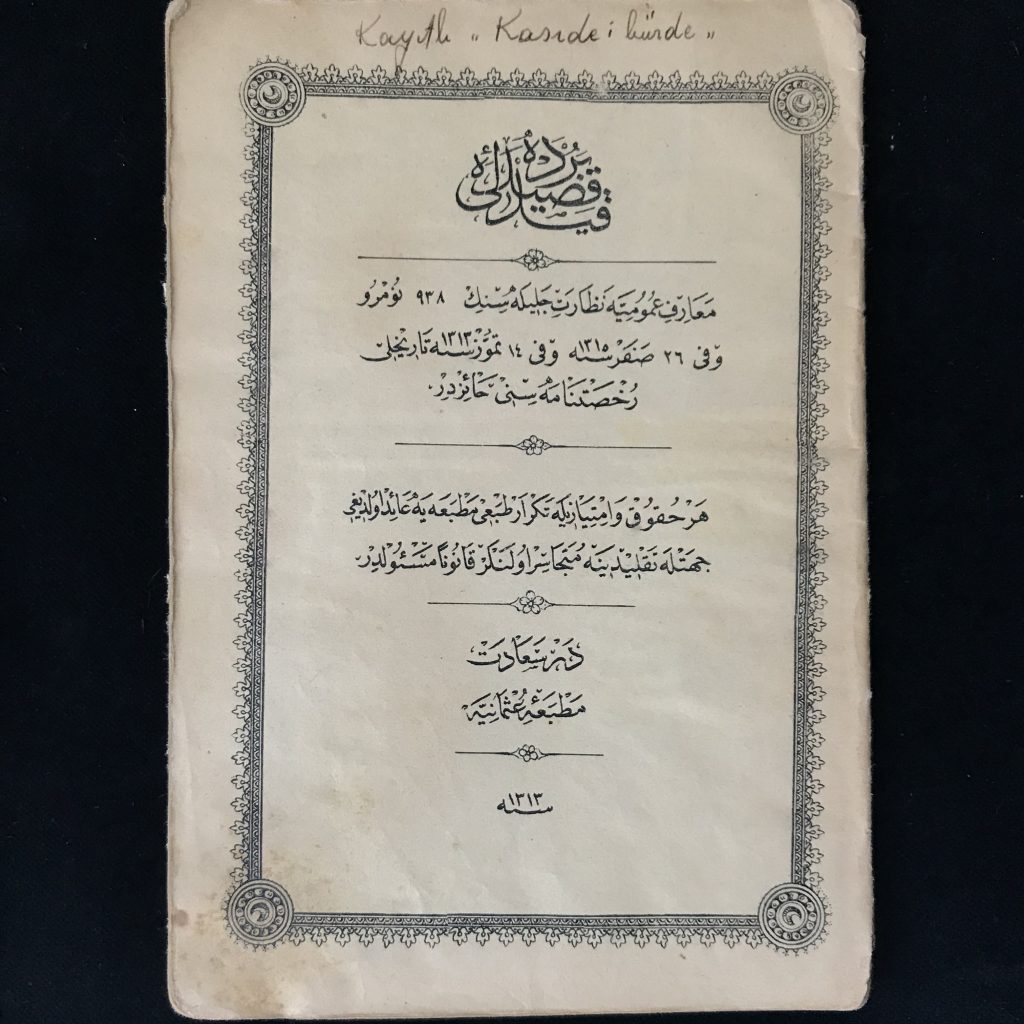 Kayıtlı „ Kaside i bürde „
قیدلی قصیدهٔ برده
معارف عمومیه نظارت جلیله سنك ٩٣٨ نومرو
و فی ٢٦ صفر سنه ١٣١٥ و فی ١٤ تموز سنه ١٣١٣ تاریخلی
رخصتنامه سنی حائزدر.
هر حقوق و امتیازیله تكرار طبعی مطبعه یه عائد اولدیغی
جهتله تقلیدینه متجاسر اولنلر قانونا مسئولدر.
درسعادت
مطبعهٔ عثمانیه
سنه ١٣١٣